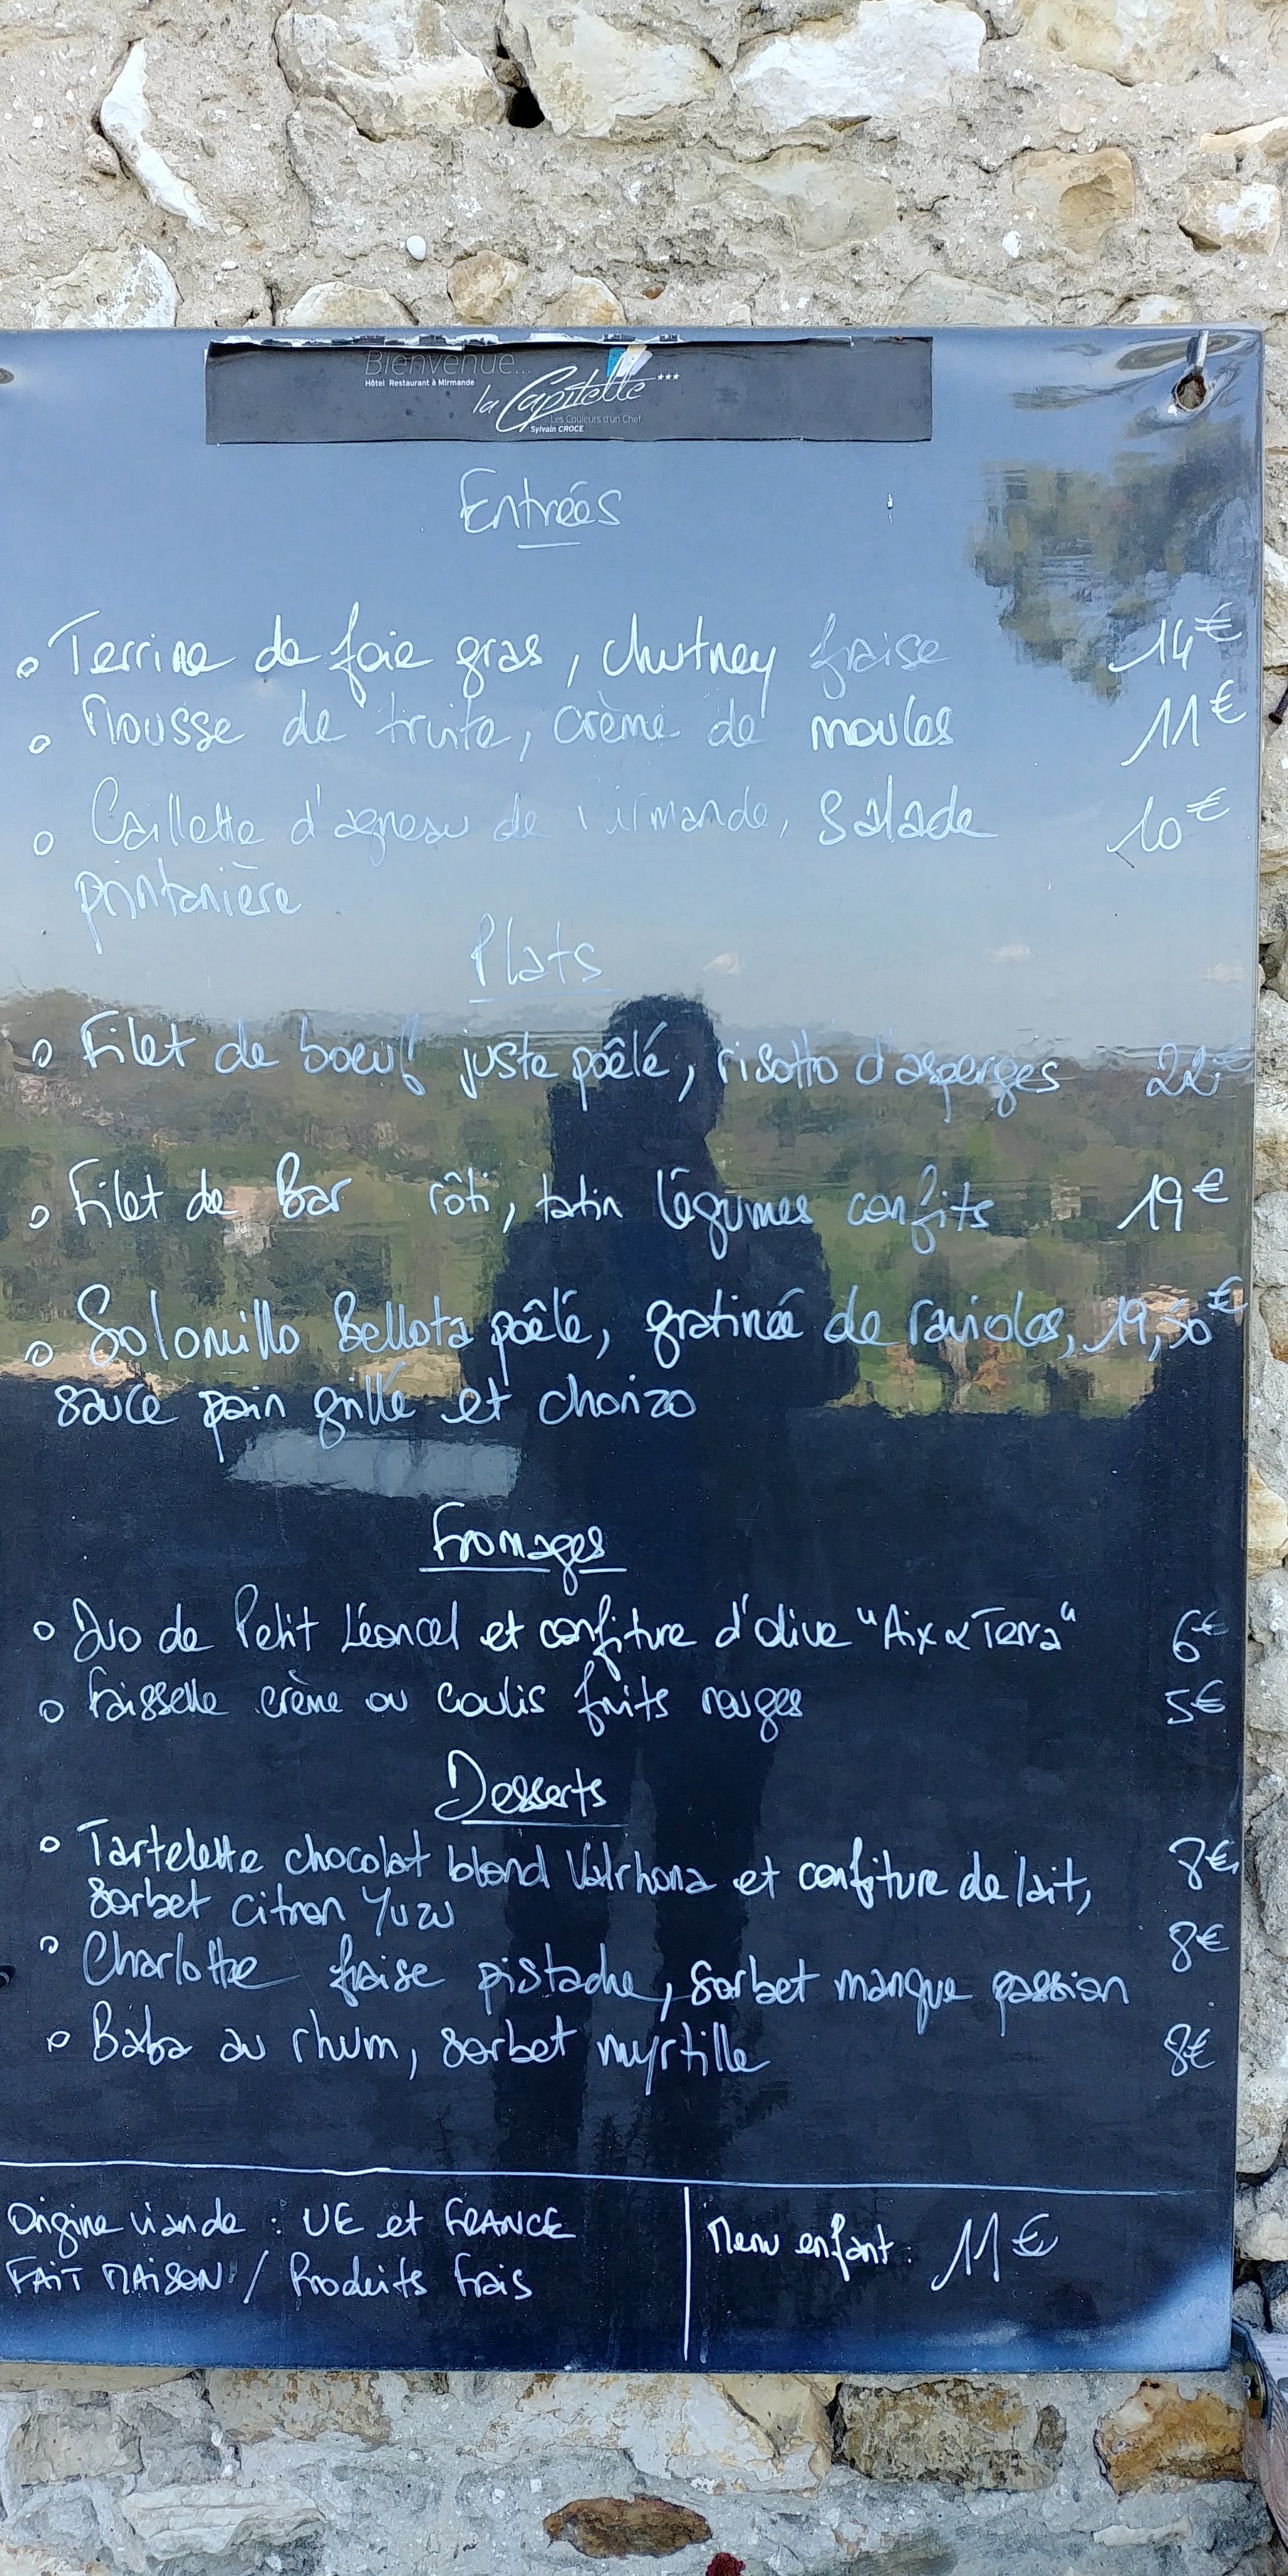 Bienvenue...
Hôtel Restaurant à Mirmande
la Capitelle ***
Les Couleurs d'un Chef
Sylvain CROCE
Entrées
Terrine de foie gras, chutney fraise 14€
Mousse de truite, crème de moules 11€
Caillette d'agneau de Mirmande, salade 10€
printanière
Plats
Filet de boeuf juste poêlé, risotto d'asperges 22€
Filet de Bar rôti, tatin légumes confits 19€
Solomillo Bellota poêlé, gratinée de ravioles, 19,50€
sauce pain grillé et chorizo
Fromages
Duo de Petit Léoncel et confiture d'olive "Aix & Terra" 6€
Faisselle crème ou coulis fruits rouges 5€
Desserts
Tartelette chocolat blond Valrhona et confiture de lait, 8€
sorbet citron yuzu
Charlotte fraise pistache, sorbet mangue passion 8€
Baba au rhum, sorbet myrtille 8€
Origine viande : UE et FRANCE
FAIT MAISON / Produits frais
Menu enfant : 11€